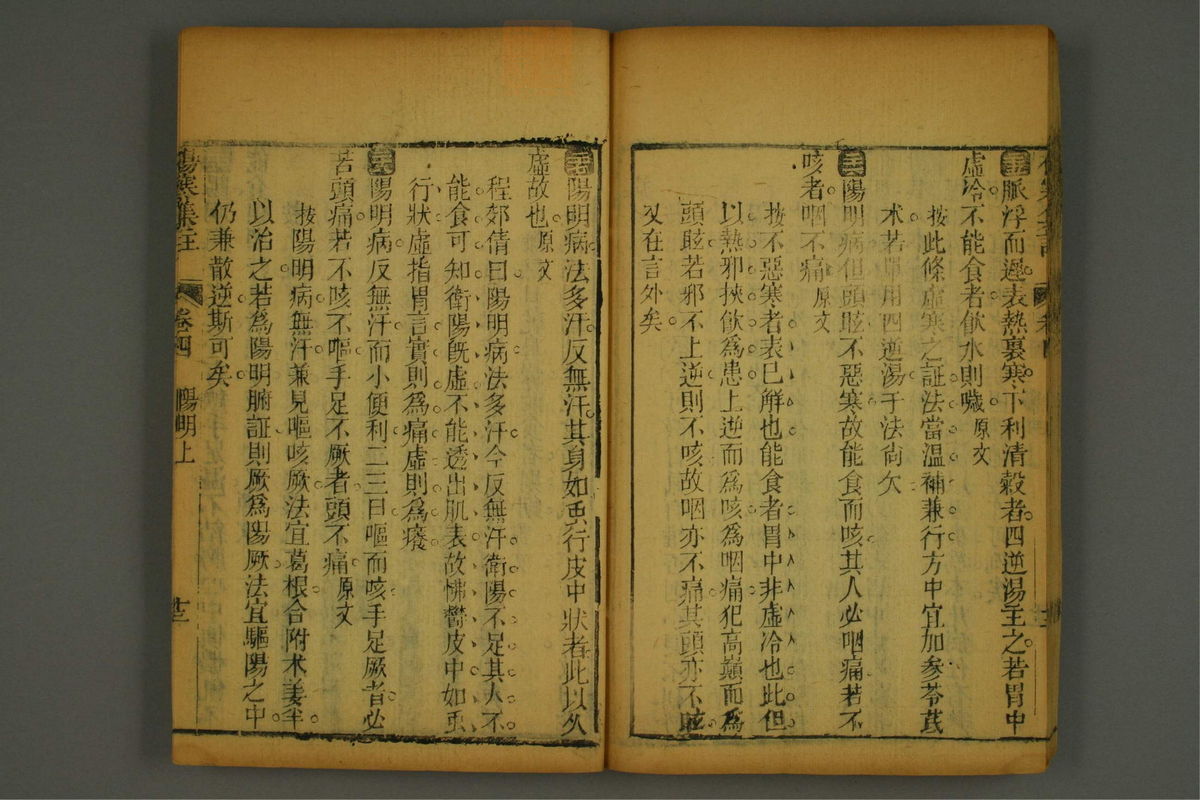 脈浮而遲表熱裏寒下利清穀者四逆湯主之若胃中
虛冷不能食者飲水則噦原文
按此條虛寒之証法當溫補兼行方中宜加參苓芪
术若單用四逆湯于法尙欠
陽明病但頭眩不惡寒故能食而咳其人必咽痛若不
咳者咽不痛原文
按不惡寒者表已解也能食者胃中非虛冷也此但
以熱邪挾飲爲患上逆而爲咳爲咽痛犯高巔而爲
頭眩若邪不上逆則不咳故咽亦不痛其頭亦不眩
又在言外矣
陽明病法多汗反無汗其身如虫行皮中狀者此以久
虛故也原文
程郊倩曰陽明病法多汗今反無汗衛陽不足其人不
能食可知衛陽旣虛不能透出肌表故怫鬱皮中如虫
行狀虛指胃言實則爲痛虛則爲癢
陽明病反無汗而小便利二三日嘔而咳手足厥者必
苦頭痛若不咳不嘔手足不厥者頭不痛原文
按陽明病無汗兼見嘔咳厥法宜葛根合附术姜半
以治之若爲陽明腑証則厥爲陽厥法宜驅陽之中
仍兼散逆斯可矣
傷寒集註 卷四 陽明上 廿三